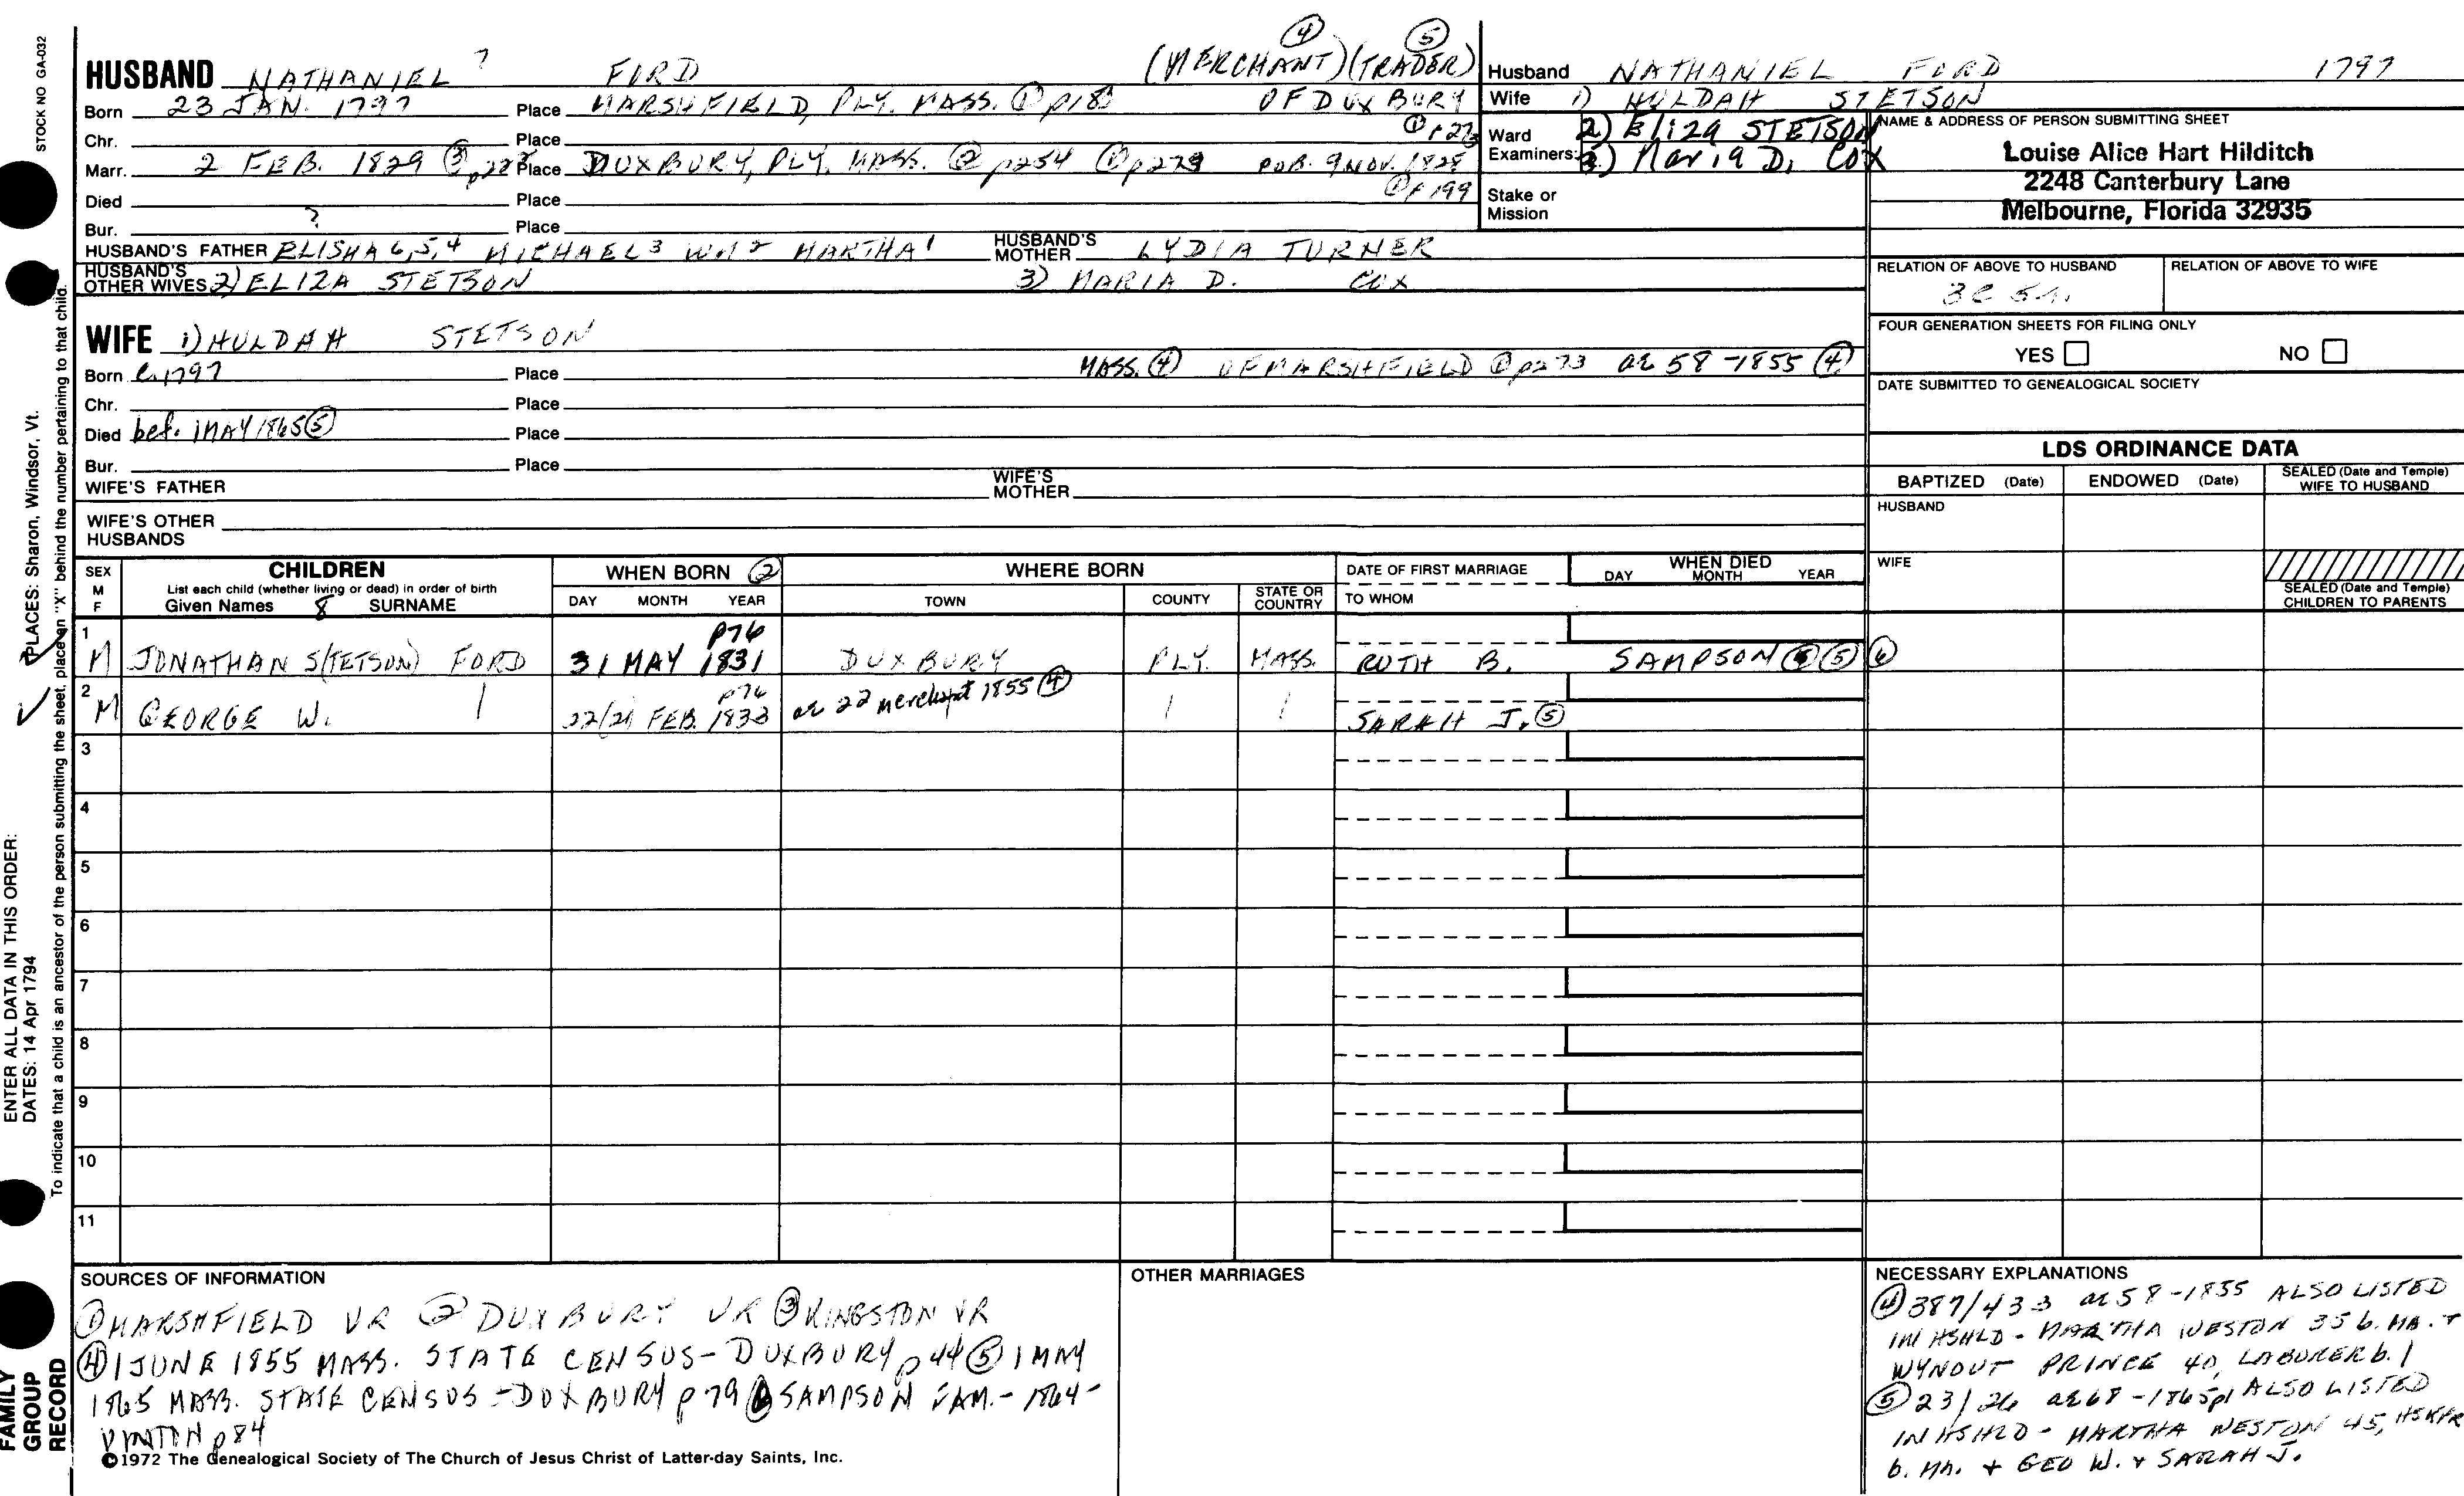 STOCK NO GA-032
HUSBAND NATHANIEL 7 FORD (MERCHANT) ④ (TRADER) ⑤
Born 23 JAN. 1797 Place MARSHFIELD, PLY. MASS. ① p180 OF DUXBURY
Chr. Place ① p273
Marr. 2 FEB. 1829 ③ Place DUXBURY, PLY. MASS. ② p254 ① p273 PUB. 9 NOV. 1828
Died Place ① p199
Bur. ? Place
HUSBAND'S FATHER ELISHA 6,5,4 MICHAEL 3 WM 2 MARTHA 1 HUSBAND'S MOTHER LYDIA TURNER
HUSBAND'S OTHER WIVES 2) ELIZA STETSON 3) MARIA D. COX
WIFE 1) HULDAH STETSON
Born c. 1797 Place MASS. ④ OF MARSHFIELD ① p273 ae 58 - 1855 ④
Chr. Place
Died bef. 1 MAY 1865 ⑤ Place
Bur. Place
WIFE'S FATHER WIFE'S MOTHER
WIFE'S OTHER HUSBANDS
Husband NATHANIEL FORD 1797
Wife 1) HULDAH STETSON
Ward 2) Eliza STETSON
Examiners: 3) Maria D. COX
Stake or Mission
NAME & ADDRESS OF PERSON SUBMITTING SHEET
Louise Alice Hart Hilditch
2248 Canterbury Lane
Melbourne, Florida 32935
RELATION OF ABOVE TO HUSBAND RELATION OF ABOVE TO WIFE
3C 5r.
FOUR GENERATION SHEETS FOR FILING ONLY
YES NO
DATE SUBMITTED TO GENEALOGICAL SOCIETY
LDS ORDINANCE DATA
BAPTIZED (Date) ENDOWED (Date) SEALED (Date and Temple) WIFE TO HUSBAND
HUSBAND
WIFE
SEALED (Date and Temple) CHILDREN TO PARENTS
SEX M F CHILDREN WHEN BORN ② WHERE BORN DATE OF FIRST MARRIAGE WHEN DIED
List each child (whether living or dead) in order of birth
Given Names 8 SURNAME DAY MONTH YEAR TOWN COUNTY STATE OR COUNTRY TO WHOM DAY MONTH YEAR
1 M JONATHAN S(TETSON) FORD 31 MAY 1831 p76 DUXBURY PLY. MASS. RUTH B. SAMPSON ④ ⑤ ⑥
2 M GEORGE W. 22/21 FEB. 1833 p76 ae 22 merchant 1855 ④ SARAH J. ⑤
3
4
5
6
7
8
9
10
11
SOURCES OF INFORMATION
① MARSHFIELD VR ② DUXBURY VR ③ KINGSTON VR
④ 1 JUNE 1855 MASS. STATE CENSUS - DUXBURY p 44 ⑤ 1 MAY
1865 MASS. STATE CENSUS - DUXBURY p 79 ⑥ SAMPSON FAM. - 1864 -
VINTON p84
©1972 The Genealogical Society of The Church of Jesus Christ of Latter-day Saints, Inc.
OTHER MARRIAGES
NECESSARY EXPLANATIONS
④ 387/433 ae 58 - 1855 ALSO LISTED
IN HSHLD - MARTHA WESTON 35 b. MA. +
PRINCE 40, LABORER b. 1
⑤ 23/26 ae 68 - 1865 ALSO LISTED
IN HSHLD - MARTHA WESTON 45, HSKPR
b. MA. + GEO W. + SARAH J.
ENTER ALL DATA IN THIS ORDER:
DATES: 14 Apr 1794
PLACES: Sharon, Windsor, Vt.
To indicate that a child is an ancestor of the person submitting the sheet, place an "X" behind the number pertaining to that child.
FAMILY GROUP RECORD